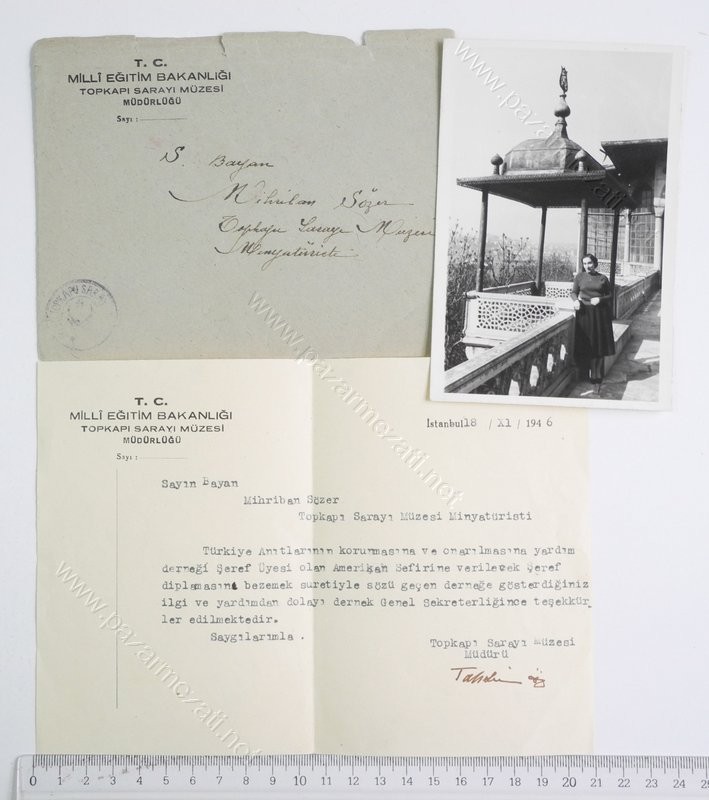 T. C.
MİLLÎ EĞİTİM BAKANLIĞI
TOPKAPI SARAYI MÜZESİ
MÜDÜRLÜĞÜ
Sayı :
S. Bayan
Mihriban Sözer
Topkapı Sarayı Müzesi
Minyatüristi
www.pazarmezati.net
T. C.
MİLLÎ EĞİTİM BAKANLIĞI
TOPKAPI SARAYI MÜZESİ
MÜDÜRLÜĞÜ
Sayı :
İstanbul 18 / XI / 1946
Sayın Bayan
Mihriban Sözer
Topkapı Sarayı Müzesi Minyatüristi
Türkiye Anıtlarının korunmasına ve onarılmasına yardım
derneği Şeref Üyesi olan Amerikan Sefirine verilecek Şeref
diplamasını bezemek suretiyle sözü geçen derneğe gösterdiğiniz
ilgi ve yardımdan dolayı dernek Genel Sekreterliğince teşekkür
ler edilmektedir.
Saygılarımla .
Topkapı Sarayı Müzesi
Müdürü
Tahsin Öz
www.pazarmezati.net
www.pazarmezati.net
0 1 2 3 4 5 6 7 8 9 10 11 12 13 14 15 16 17 18 19 20 21 22 23 24 25